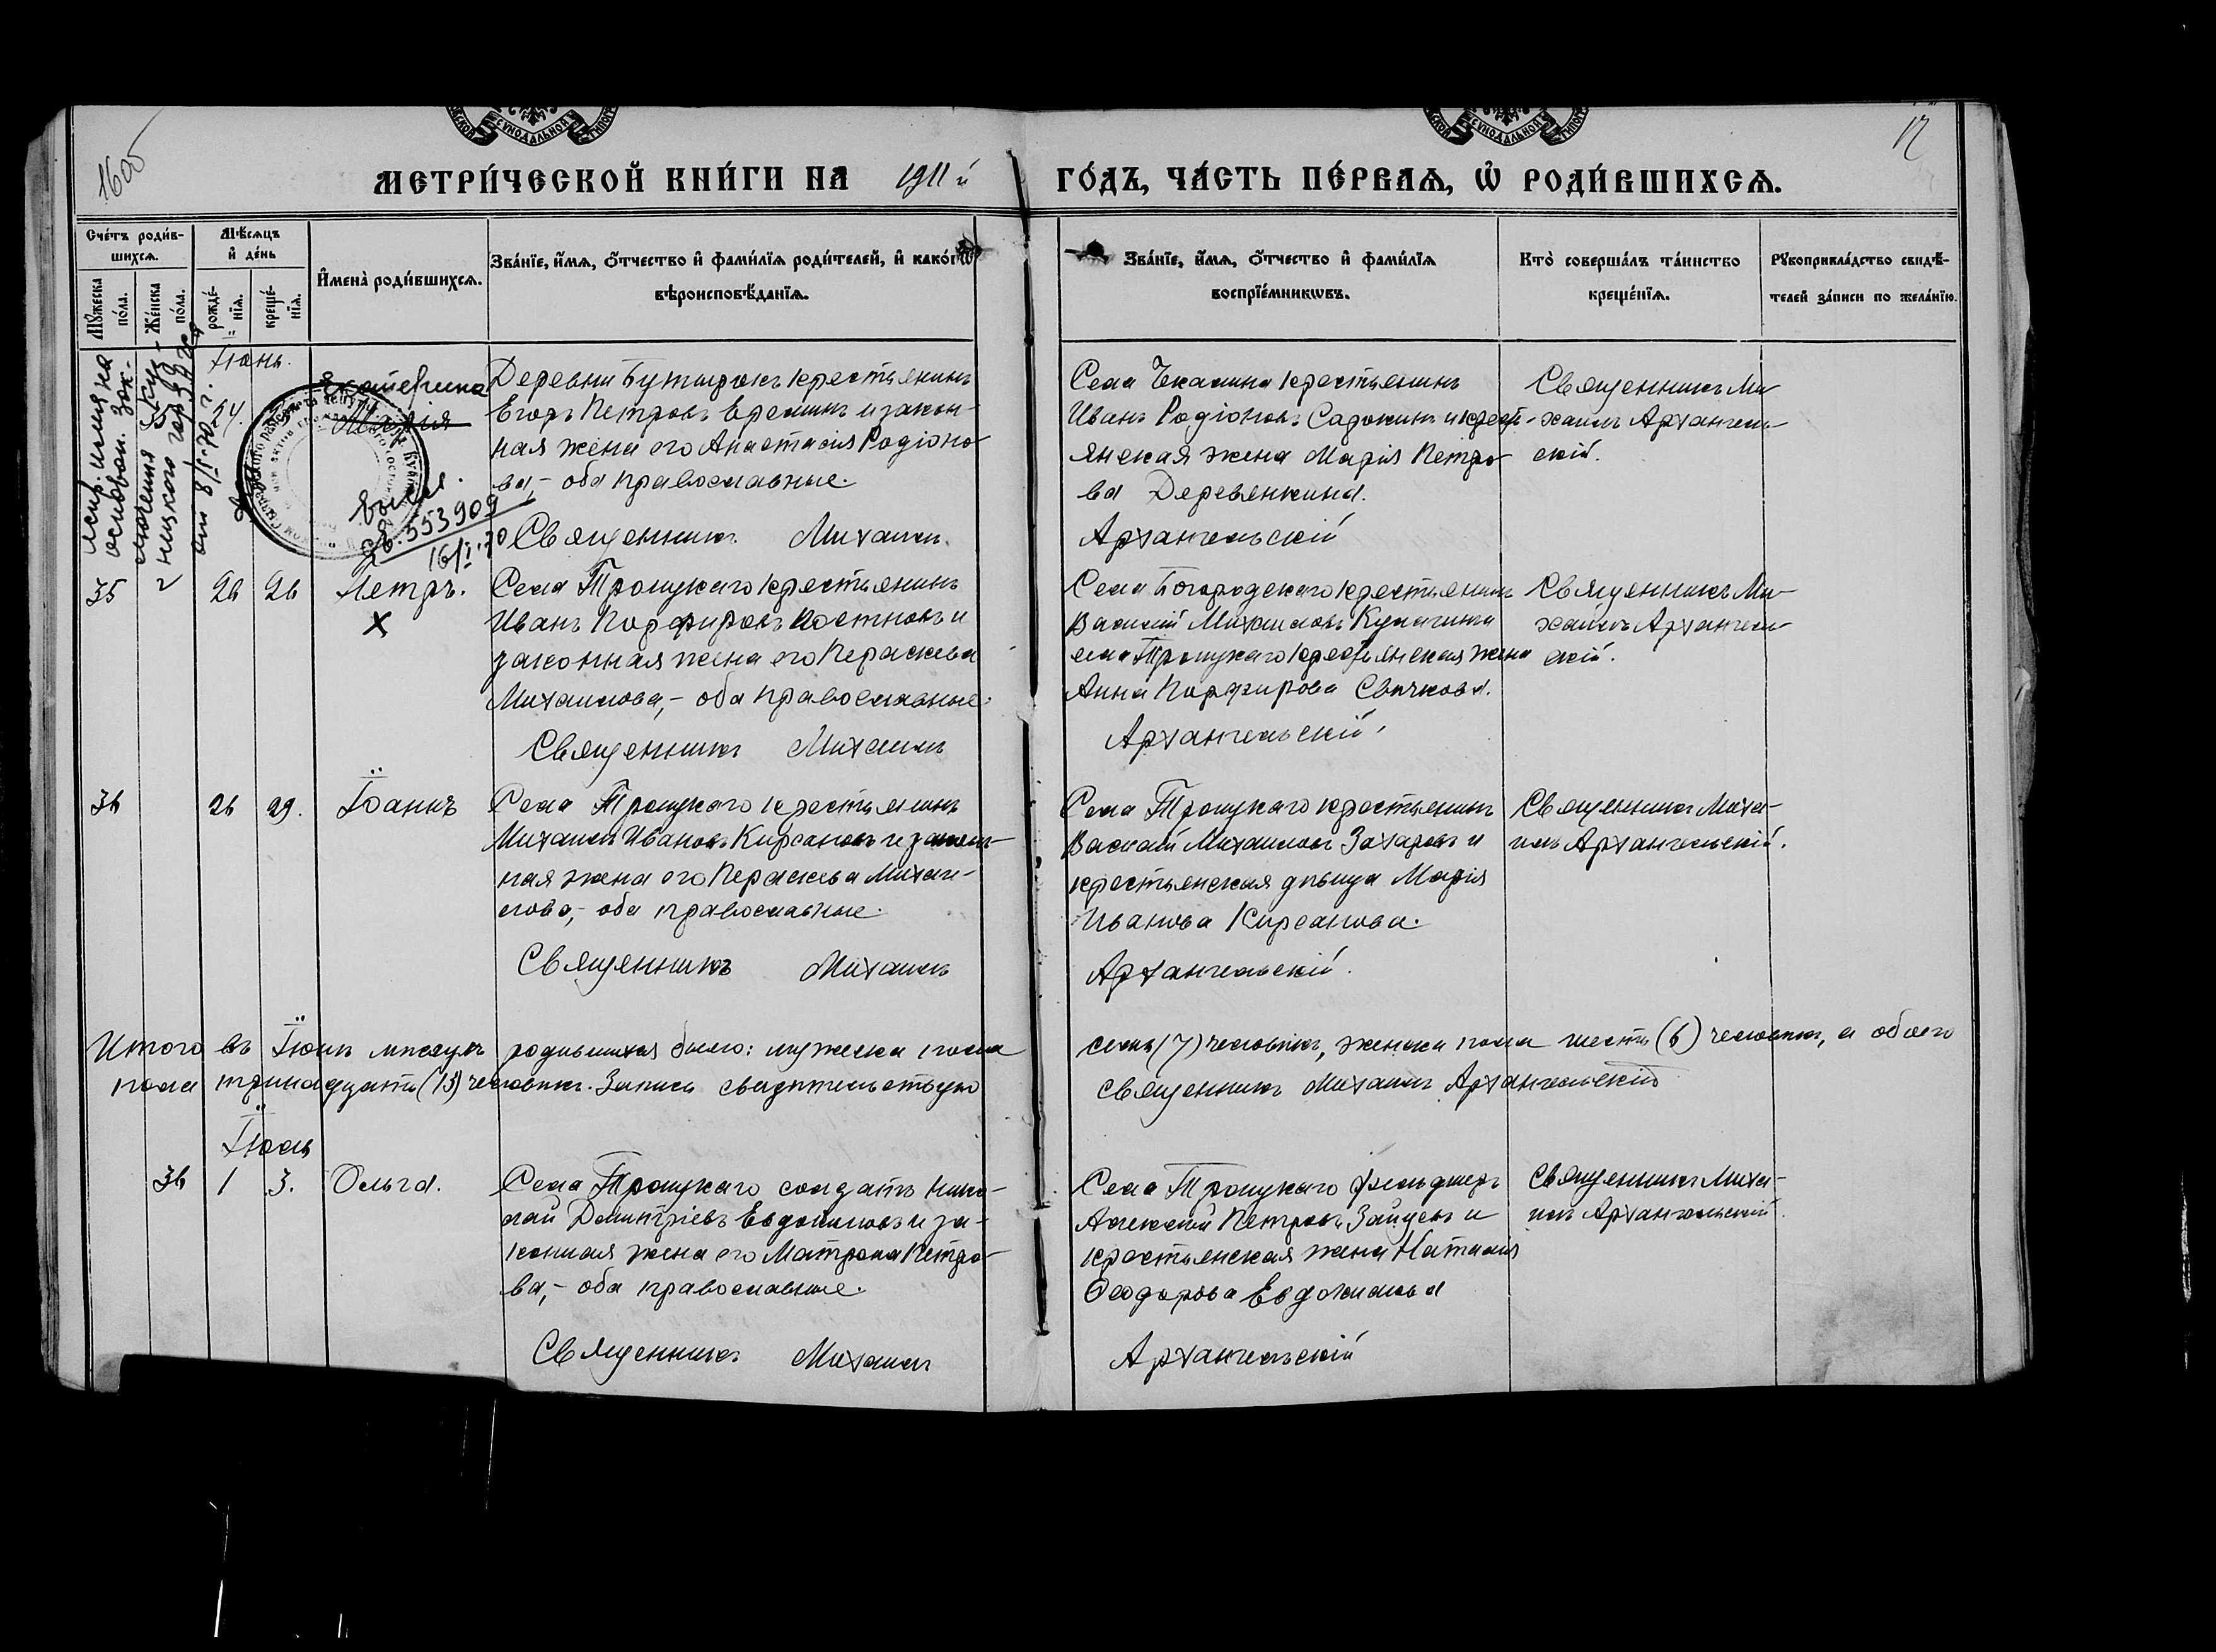 СѴНОДАЛЬНОЙ
СѴНОДАЛЬНОЙ
12
МЕТРИ́ЧЕСКОЙ КНИ́ГИ НА 1911 й ГО́ДЪ, ЧА́СТЬ ПЕ́РВАѦ, Ѡ҆ РОДИ́ВШИХСѦ.
Сче́тъ роди́в-
шихсѧ.
Мꙋ́жеска по́ла.
Же́нска по́ла.
Мѣ́сѧцъ
и҆ де́нь
рожде́-
нїѧ.
креще́-
нїѧ.
И҆мена̀ роди́вшихсѧ.
Зва́нїе, и҆́мѧ, о҆́тчество и҆ фами́лїѧ роди́телей, и҆ како́гѡ
вѣроисповѣ́данїѧ.
Зва́нїе, и҆́мѧ, о҆́тчество и҆ фами́лїѧ
воспрїе́мникѡвъ.
Кто̀ соверша́лъ та́инство
креще́нїѧ.
Рꙋкоприкла́дство свидѣ́-
телей за́писи по жела́нїю.
Іюнь.
Екатерина
Марія
Деревни Бутырокъ крестьянинъ
Егоръ Петровъ Еремин и закон-
ная жена его Анастасія Родіоно-
ва,- оба православные.
Священникъ Михаилъ
Села Чкалина крестьянинъ
Иванъ Родіоновъ Сарокинъ и крест-
янская жена Марія Петро-
ва Деревянкина.
Архангельскій
Священникъ Ми-
хаилъ Архангель-
скій.
553909
16/I.70
35 26 26 Петръ.
Села Троицкаго крестьянинъ
Иванъ Порфировъ Постновъ и
законная жена его Параскева
Михаилова,- оба православные.
Священникъ Михаилъ
Села Богородскаго крестьянинъ
Василій Михаиловъ Кулагинъ
села Троицкаго крестьянская жена
Анна Порфирова Свечкова.
Архангельскій
Священникъ Ми-
хаилъ Архангель-
скій.
36 26 29. Іоаннъ
Села Троицкаго крестьянинъ
Михаилъ Ивановъ Кирсановъ и закон-
ная жена его Параскева Михаи-
лова,- оба православные.
Священникъ Михаилъ
Села Троицкаго крестьянинъ
Василій Михаиловъ Захаровъ и
крестьянская дѣвица Марія
Иванова Кирсанова.
Архангельскій.
Священникъ Миха-
илъ Архангельскій.
Итого въ Іюнѣ мѣсяцѣ родившихся было: мужеска пола семь (7) человѣкъ, женска пола шесть (6) человѣкъ, а обоего
пола тринадцать (13) человѣкъ. Запись свидѣтельствую священникъ Михаилъ Архангельскій
Іюль
36 1 3. Ольга.
Села Троицкаго солдатъ Нико-
лай Димитріевъ Евдокимовъ и за-
конная жена его Матрона Петро-
ва,- оба православные.
Священникъ Михаилъ
Села Троицкаго фельдшеръ
Алексѣй Петровъ Зайцевъ и
крестьянская жена Наталія
Ѳеодорова Евдокимова
Архангельскій
Священникъ Миха-
илъ Архангельскій.